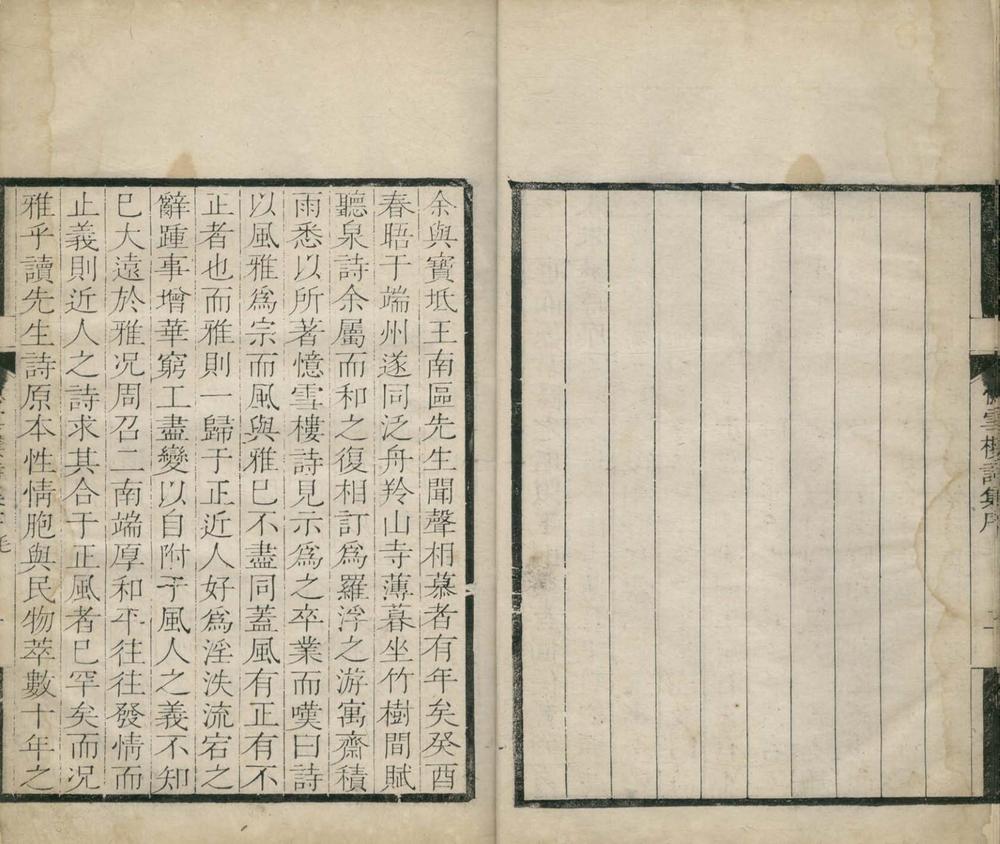 憶雪樓詩集序
余與寶坻王南區先生聞聲相慕者有年矣癸酉
春晤于端州遂同泛舟羚山寺薄暮坐竹樹間賦
聽泉詩余屬而和之復相訂爲羅浮之游寓齋積
雨悉以所著憶雪樓詩見示爲之卒業而嘆曰詩
以風雅爲宗而風與雅已不盡同蓋風有正有不
正者也而雅則一歸于正近人好爲淫泆流宕之
辭踵事增華窮工盡變以自附于風人之義不知
已大遠於雅况周召二南端厚和平往往發情而
止義則近人之詩求其合于正風者已罕矣而况
雅乎讀先生詩原本性情胞與民物萃數十年之